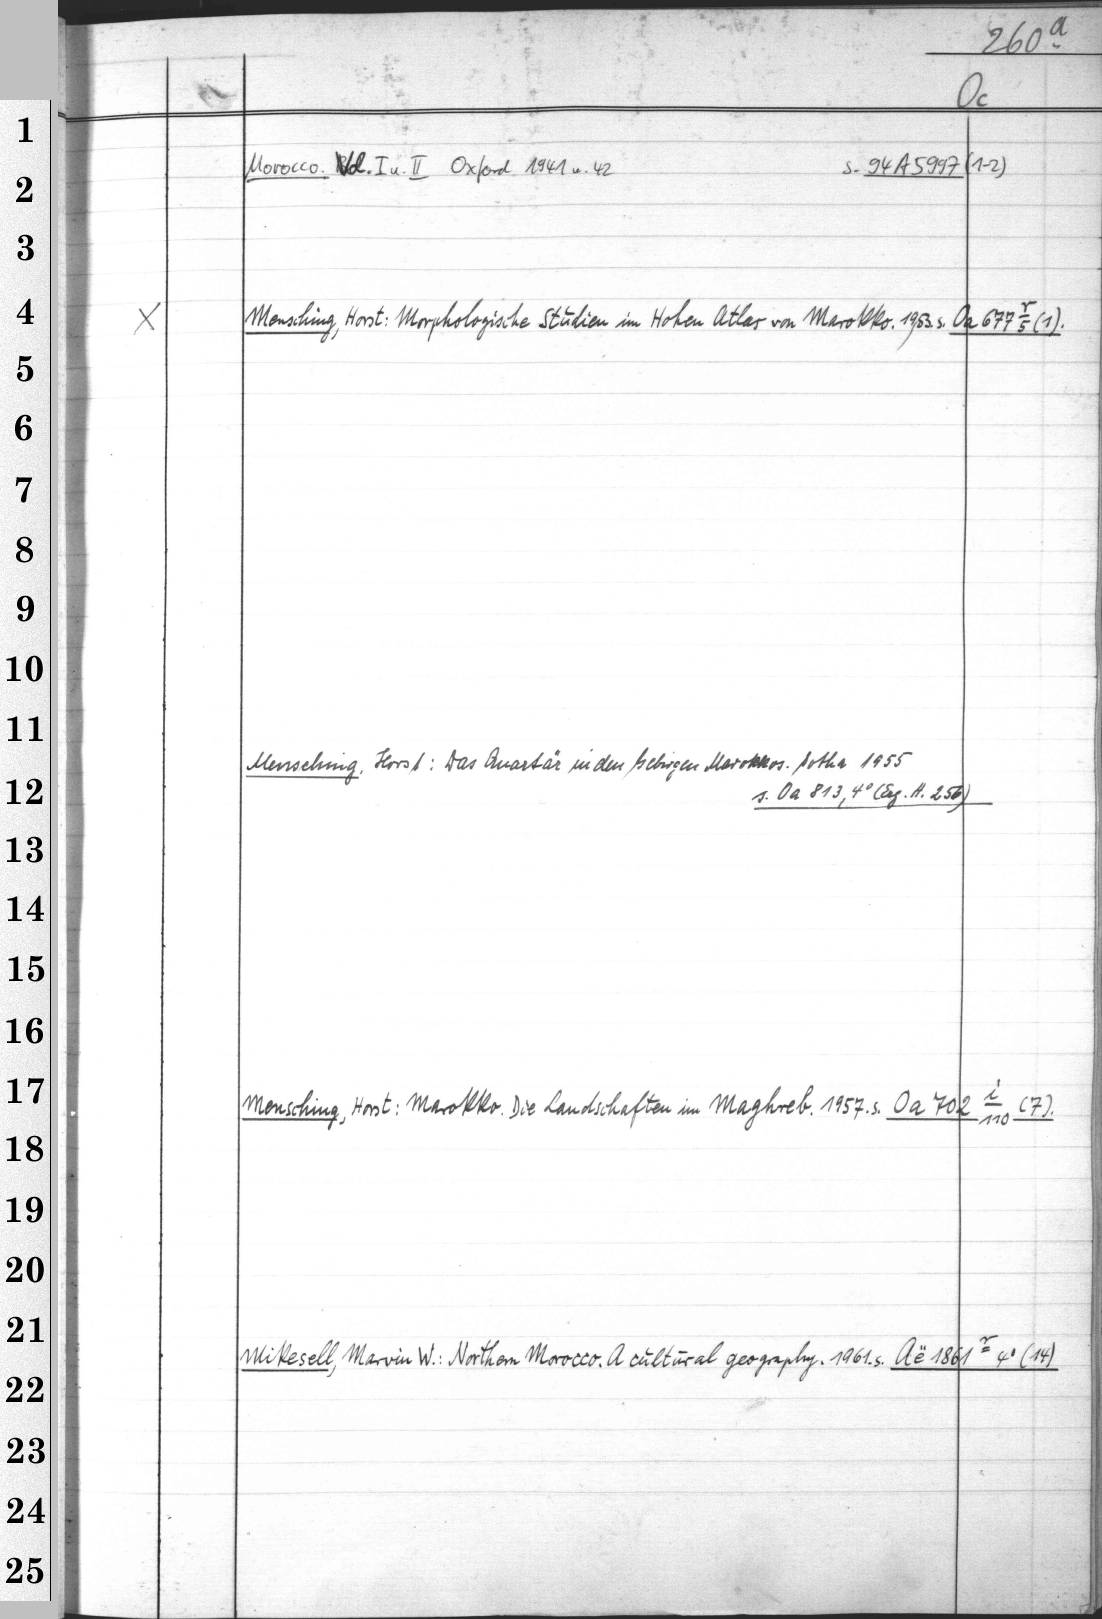 260a
Oc
1
2
3
4
5
6
7
8
9
10
11
12
13
14
15
16
17
18
19
20
21
22
23
24
25
Morocco. Vol. I u. II Oxford 1941 u. 42 s. 94 A 5997 (1-2)
X Mensching, Horst: Morphologische Studien im Hohen Atlas von Marokko. 1953. s. Oa 677 r/5 (1).
Mensching, Horst: Das Quartär in den Gebirgen Marokkos. Gotha 1955
s. Oa 813, 4° (Erg. H. 256)
Mensching, Horst: Marokko. Die Landschaften im Maghreb. 1957. s. Oa 702 i/110 (7).
Mikesell, Marvin W.: Northern Morocco. A cultural geography. 1961. s. Aë 1861 r 4° (14)